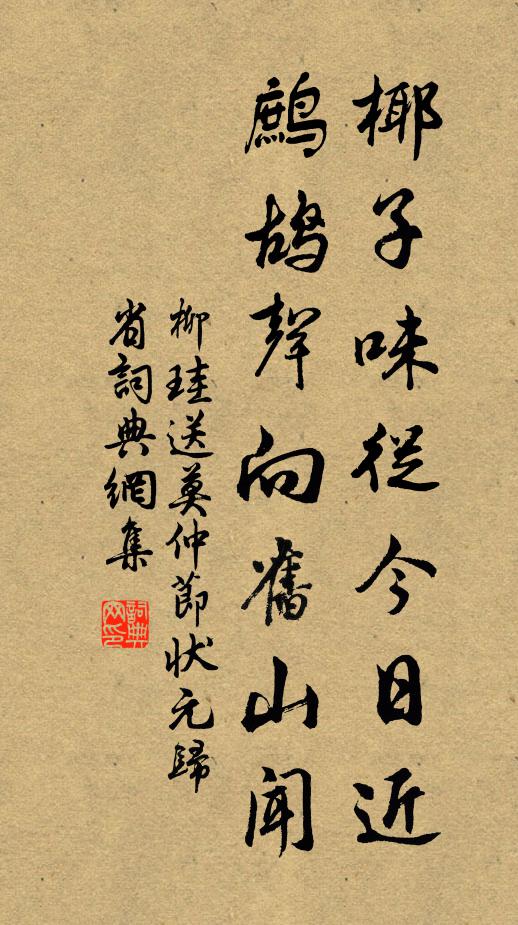 椰子味從今日近
鷓鴣聲向舊山聞
柳珪送莫仲節状元歸
省詞典網集
詞典網印